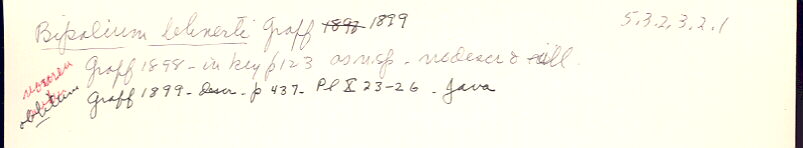 Bipalium lehnerti Graff 1898 1899
5.3.2.3.2.1
Graff 1898 - in key p 123 as n.sp. - no descr or ill.
nomen oblitum
Graff 1899 - descr. p 437 - Pl X 23-26 - Java